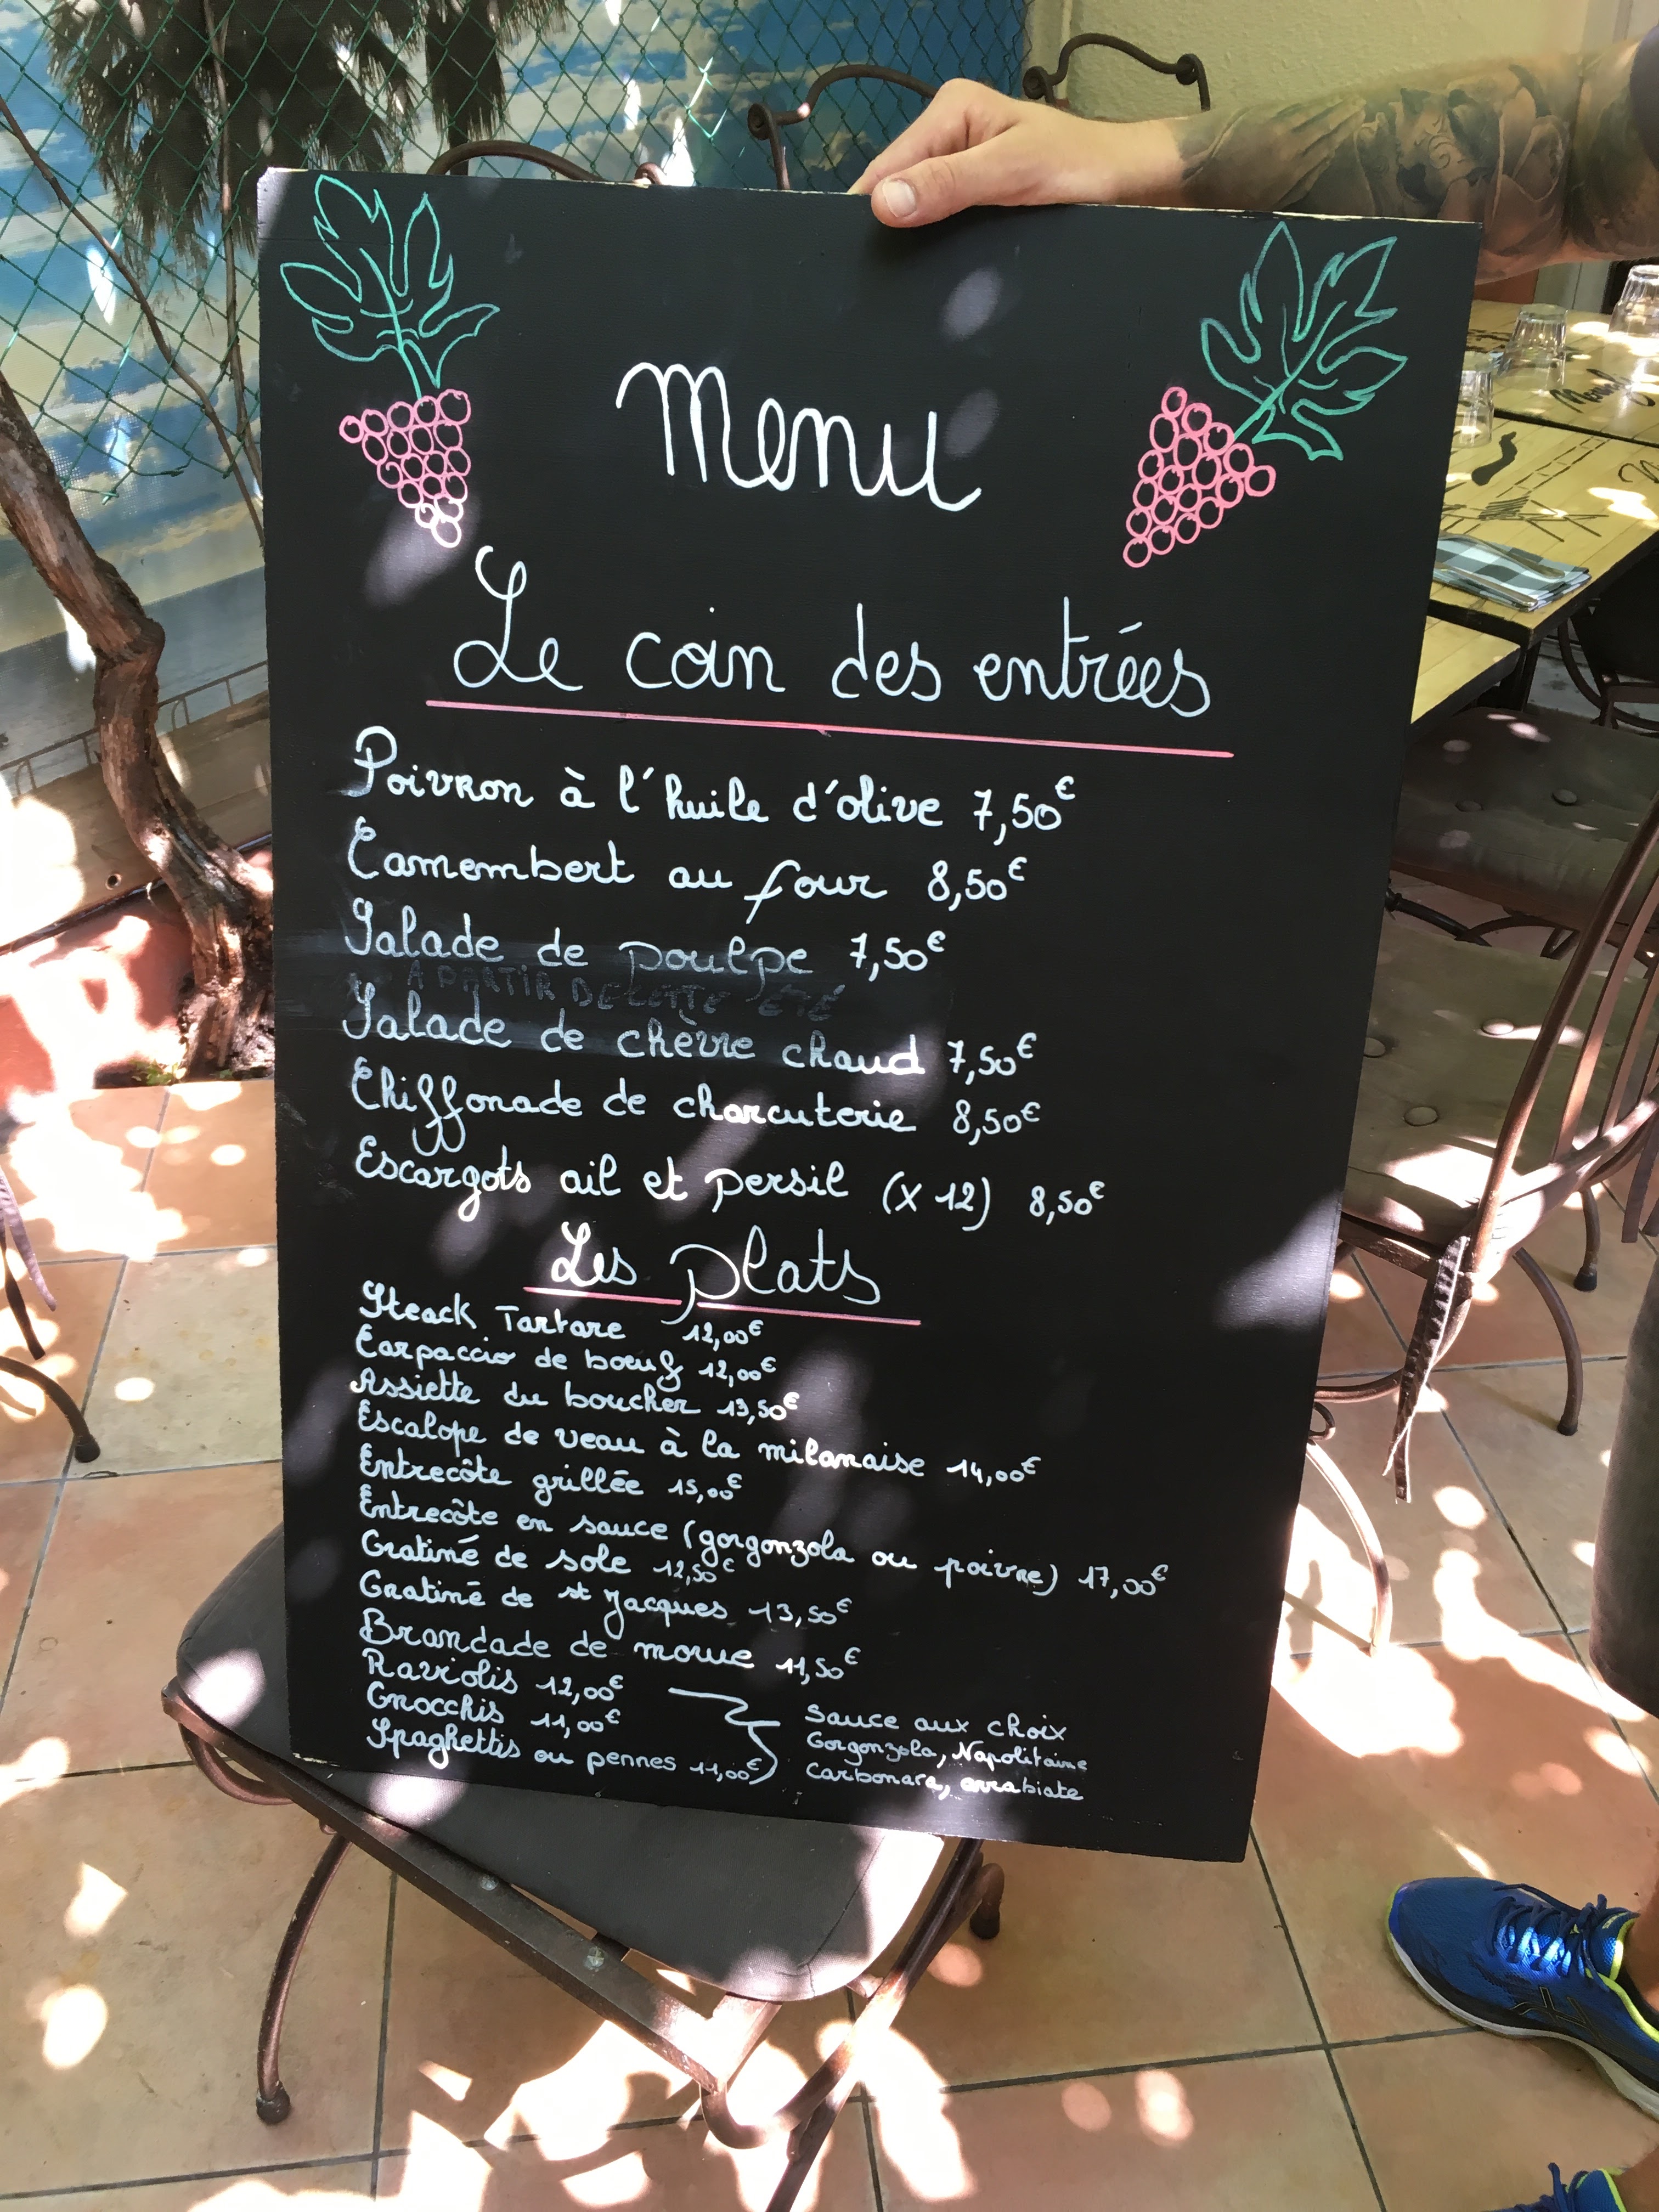 Menu
Le coin des entrées
Poivron à l'huile d'olive 7,50€
Camembert au four 8,50€
Salade de poulpe 7,50€
A PARTIR DE CETTE ÉTÉ
Salade de chèvre chaud 7,50€
Chiffonade de charcuterie 8,50€
Escargots ail et persil (x 12) 8,50€
Les plats
Steack Tartare 12,00€
Carpaccio de boeuf 12,00€
Assiette du boucher 13,50€
Escalope de veau à la milanaise 14,00€
Entrecôte grillée 15,00€
Entrecôte en sauce (gorgonzola ou poivre) 17,00€
Gratiné de sole 12,50€
Gratiné de st Jacques 13,50€
Brandade de morue 11,50€
Raviolis 12,00€
Gnocchis 11,00€
Spaghettis ou pennes 11,00€
Sauce aux choix
Gorgonzola, Napolitaine
Carbonara, arrabiate